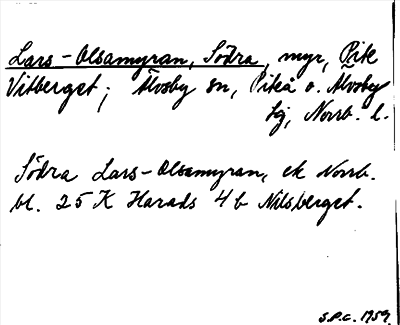 Lars-Olsamyran, Södra, myr, Pite
Vitberget; Älvsby sn, Piteå o. Älvsby
tg, Norrb. l.
Södra Lars-Olsamyran, ek Norrb.
bl. 25 K Harads 4 b Nilsberget.
S.P.C. 1959.